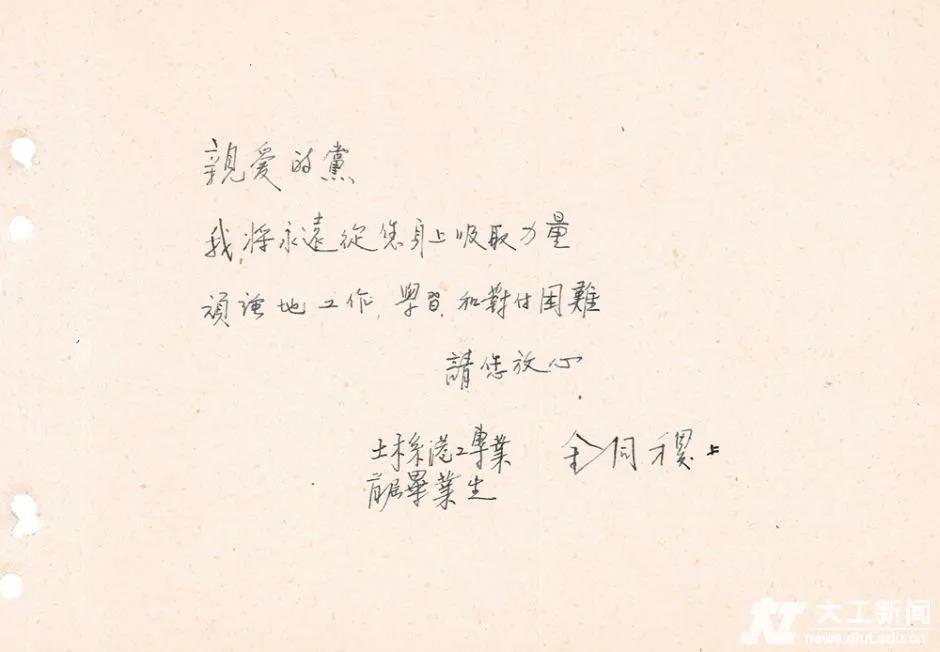 親愛的黨
我將永遠從您身上吸取力量
頑強地工作,學習,和對付困難
請您放心
土木系港工專業 金同稷上
首屆畢業生
大工新闻
news.dlut.edu.cn